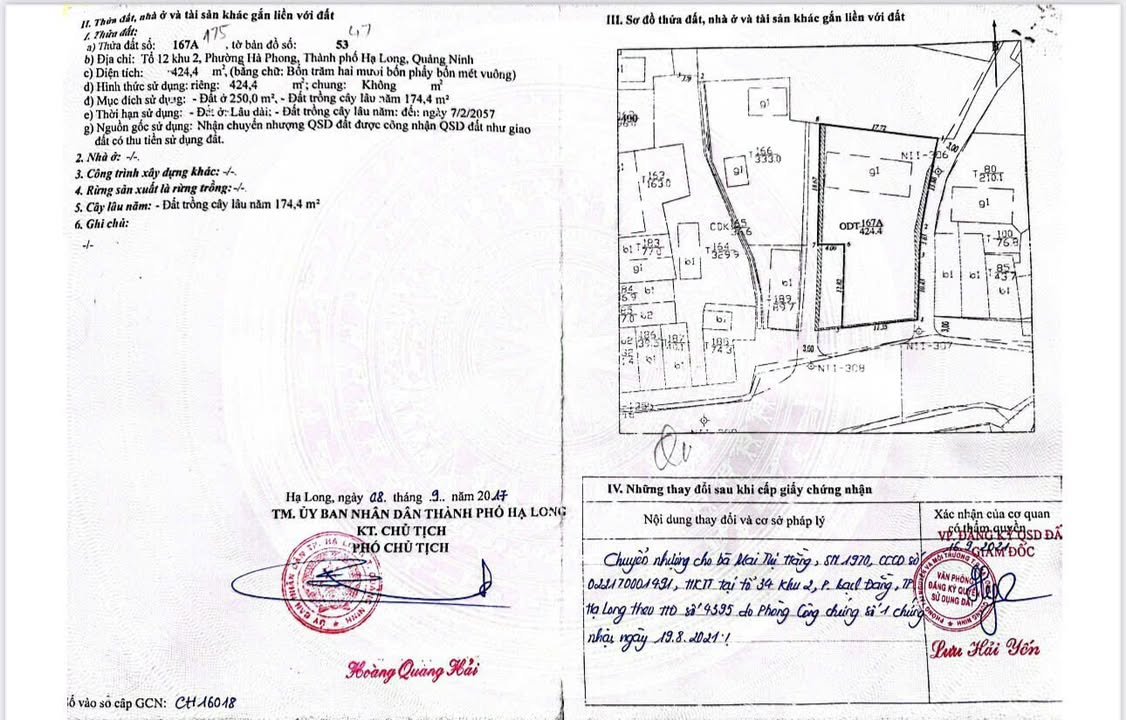 II. Thửa đất, nhà ở và tài sản khác gắn liền với đất
1. Thửa đất: 175 47
a) Thửa đất số: 167A , tờ bản đồ số: 53
b) Địa chỉ: Tổ 12 khu 2, Phường Hà Phong, Thành phố Hạ Long, Quảng Ninh
c) Diện tích: 424,4 m², (bằng chữ: Bốn trăm hai mươi bốn phẩy bốn mét vuông)
d) Hình thức sử dụng: riêng: 424,4 m²; chung: Không m²
đ) Mục đích sử dụng: - Đất ở 250,0 m², - Đất trồng cây lâu năm 174,4 m²
e) Thời hạn sử dụng: - Đất ở: Lâu dài: - Đất trồng cây lâu năm: đến ngày 7/2/2057
g) Nguồn gốc sử dụng: Nhận chuyển nhượng QSD đất được công nhận QSD đất như giao
đất có thu tiền sử dụng đất.
2. Nhà ở: -/-.
3. Công trình xây dựng khác: -/-.
4. Rừng sản xuất là rừng trồng: -/-.
5. Cây lâu năm: - Đất trồng cây lâu năm 174,4 m²
6. Ghi chú:
-/-
Hạ Long, ngày 08. tháng .9.. năm 2017
TM. ỦY BAN NHÂN DÂN THÀNH PHỐ HẠ LONG
KT. CHỦ TỊCH
PHÓ CHỦ TỊCH
Hoàng Quang Hải
số vào sổ cấp GCN: CH16018
III. Sơ đồ thửa đất, nhà ở và tài sản khác gắn liền với đất
g1
17.72
NII-306
3.00
T 166
333.0
g1
g1
T 80
210.1
g1
T 163
163.0
ODT 167A
424.4
CDK 165
T 164
329.9
b1
T 183
77.0
g1
4.00
100
76.8
85
43.7
b1
b1
b1
b1
189
69.7
17.02
b1
b2
b2
186
187
b1
b1
188
74.3
17.35
3.00
3.00
NII-307
NII-308
IV. Những thay đổi sau khi cấp giấy chứng nhận
Nội dung thay đổi và cơ sở pháp lý
Xác nhận của cơ quan
có thẩm quyền
Chuyển nhượng cho bà Mai Thị Hằng, SN 1970, CCCD số
022170001491, HKTT tại tổ 34 khu 2, P. Bạch Đằng, TP
Hạ Long theo HĐ số 4395 do Phòng Công chứng số 1 chứng
nhận ngày 19.8.2021 !
VP. ĐĂNG KÝ QSD ĐẤ
16.9.2021
GIÁM ĐỐC
VĂN PHÒNG
ĐĂNG KÝ QUYỀN
SỬ DỤNG ĐẤT
Lưu Hải Yến